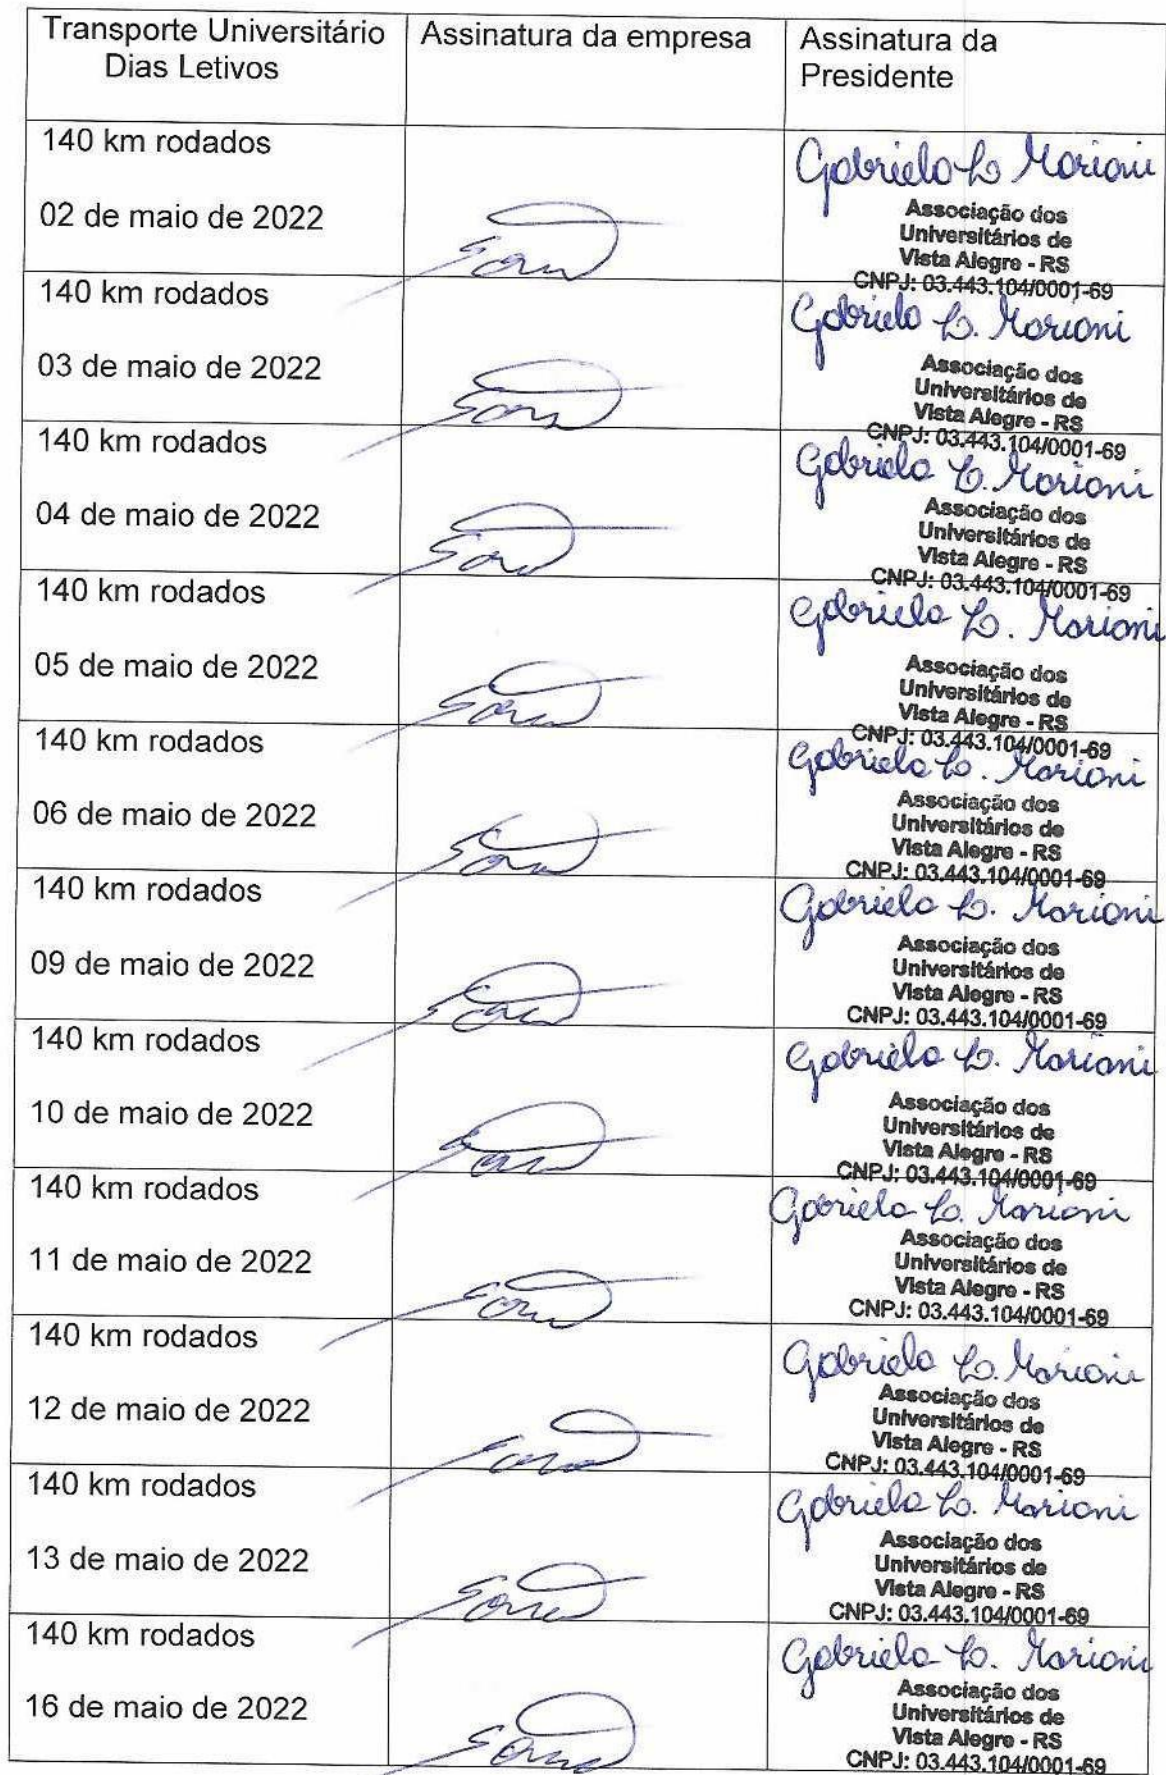 Transporte Universitário
Dias Letivos
Assinatura da empresa
Assinatura da
Presidente
140 km rodados
02 de maio de 2022
Gabriela L. Marioni
Associação dos
Universitários de
Vista Alegre - RS
CNPJ: 03.443.104/0001-69
140 km rodados
03 de maio de 2022
Gabriela L. Marioni
Associação dos
Universitários de
Vista Alegre - RS
CNPJ: 03.443.104/0001-69
140 km rodados
04 de maio de 2022
Gabriela L. Marioni
Associação dos
Universitários de
Vista Alegre - RS
CNPJ: 03.443.104/0001-69
140 km rodados
05 de maio de 2022
Gabriela L. Marioni
Associação dos
Universitários de
Vista Alegre - RS
CNPJ: 03.443.104/0001-69
140 km rodados
06 de maio de 2022
Gabriela L. Marioni
Associação dos
Universitários de
Vista Alegre - RS
CNPJ: 03.443.104/0001-69
140 km rodados
09 de maio de 2022
Gabriela L. Marioni
Associação dos
Universitários de
Vista Alegre - RS
CNPJ: 03.443.104/0001-69
140 km rodados
10 de maio de 2022
Gabriela L. Marioni
Associação dos
Universitários de
Vista Alegre - RS
CNPJ: 03.443.104/0001-69
140 km rodados
11 de maio de 2022
Gabriela L. Marioni
Associação dos
Universitários de
Vista Alegre - RS
CNPJ: 03.443.104/0001-69
140 km rodados
12 de maio de 2022
Gabriela L. Marioni
Associação dos
Universitários de
Vista Alegre - RS
CNPJ: 03.443.104/0001-69
140 km rodados
13 de maio de 2022
Gabriela L. Marioni
Associação dos
Universitários de
Vista Alegre - RS
CNPJ: 03.443.104/0001-69
140 km rodados
16 de maio de 2022
Gabriela L. Marioni
Associação dos
Universitários de
Vista Alegre - RS
CNPJ: 03.443.104/0001-69